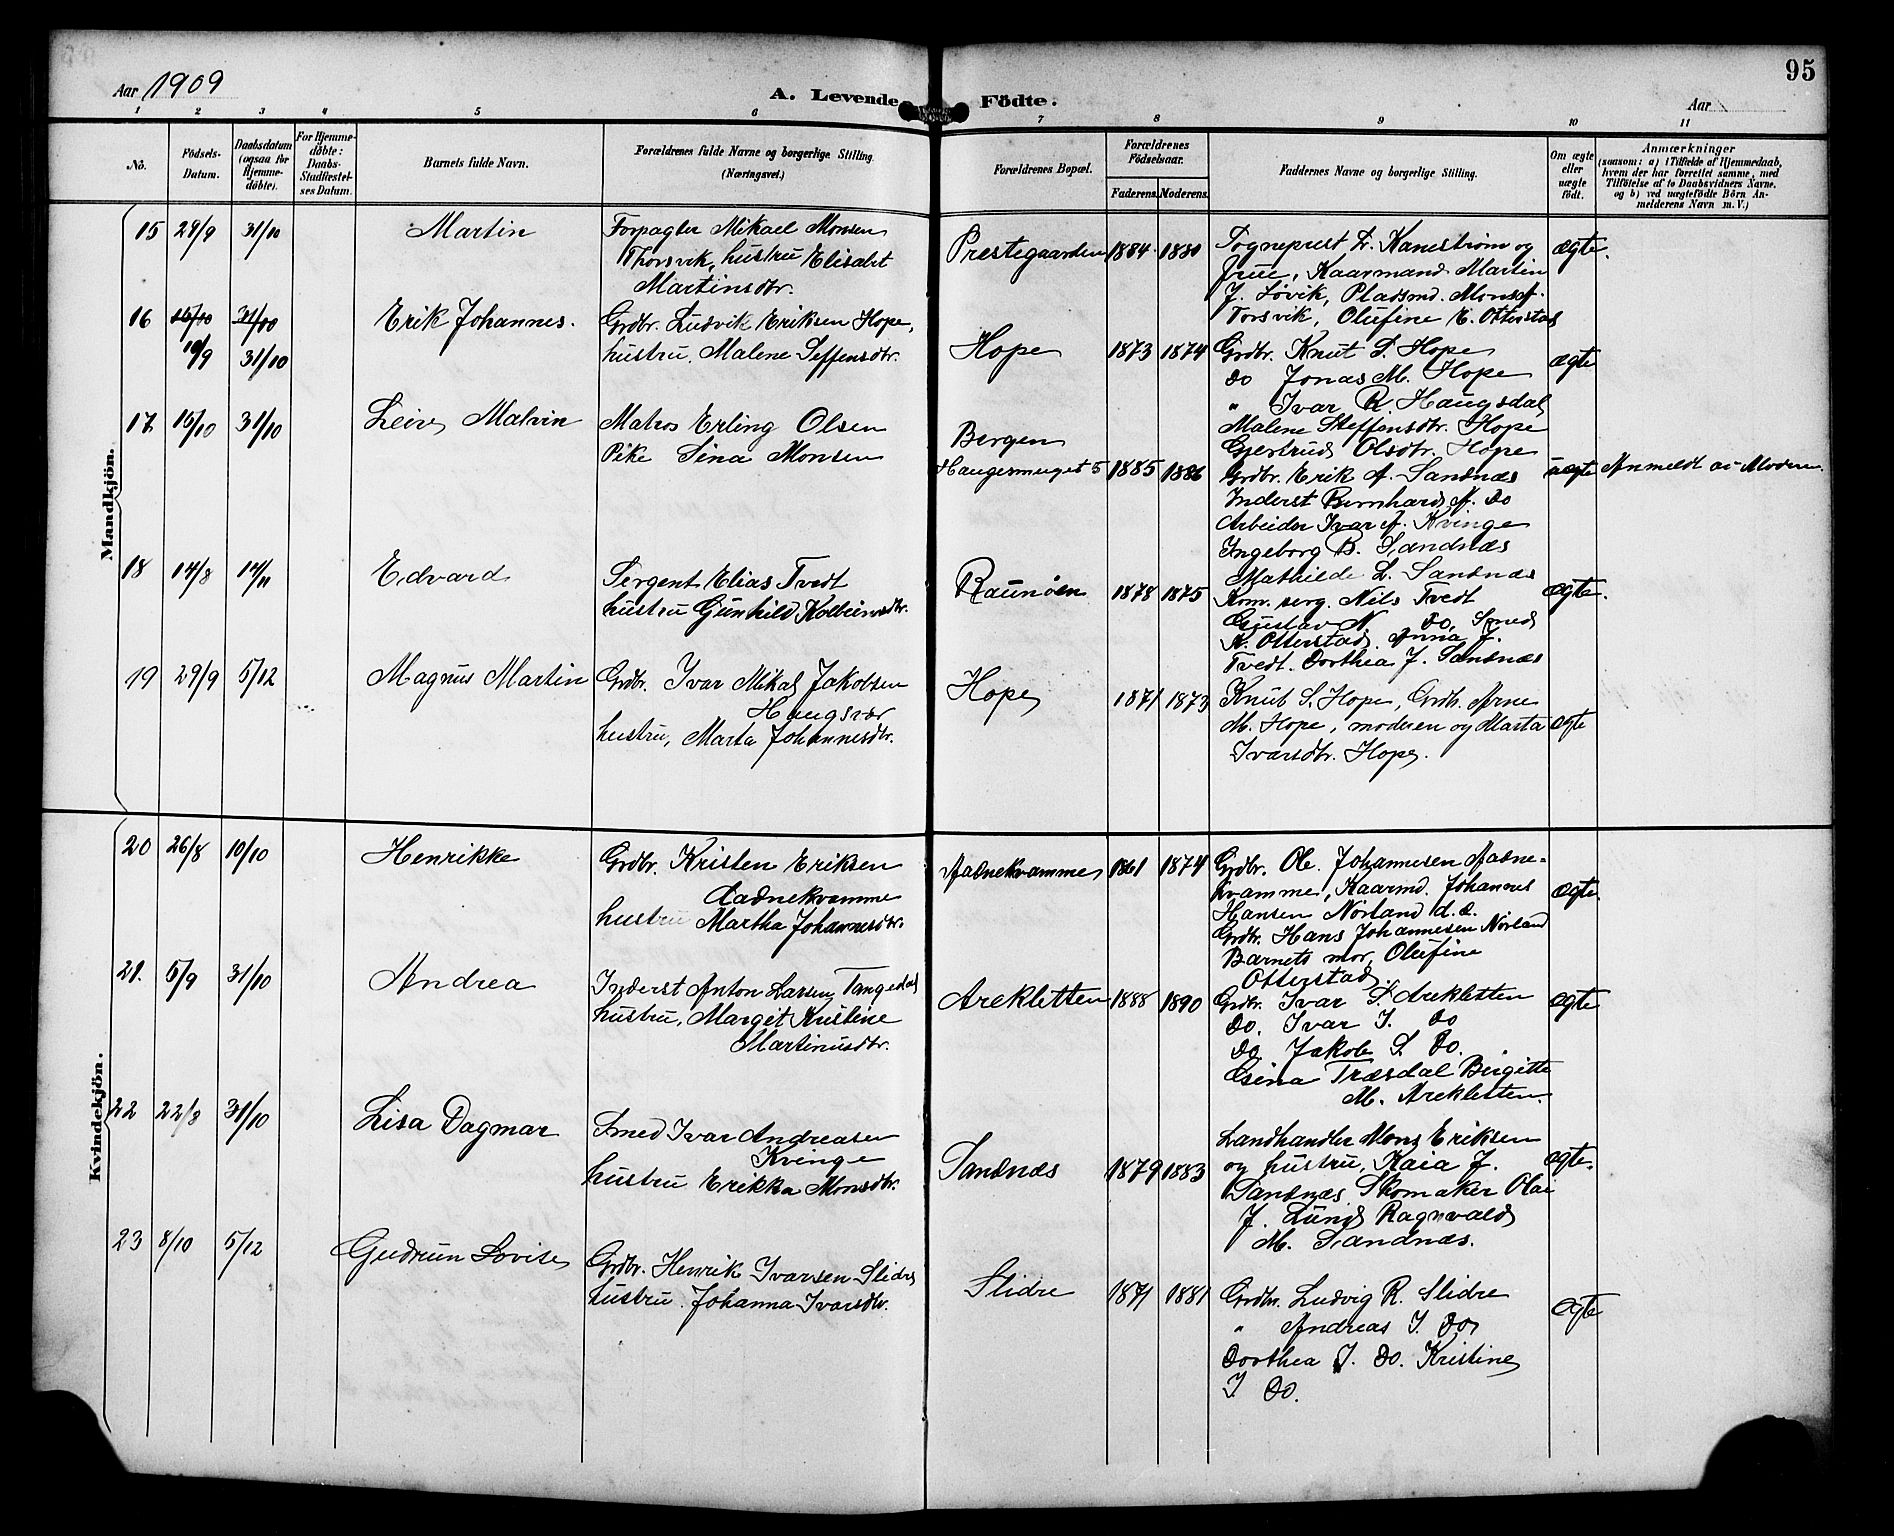 95
Aar 1909
A. Levende Födte.
Aar
1 2 3 4 5 6 7 8 9 10 11
No.
Födsels-Datum.
Daabsdatum (ogsaa for Hjemme-döbte).
For Hjemme-döbte: Daabs-Stadfæstel-ses Datum.
Barnets fulde Navn.
Forældrenes fulde Navne og borgerlige Stilling (Næringsvei.)
Forældrenes Bopæl.
Forældrenes Födselsaar.
Faderens. Moderens.
Faddernes Navne og borgerlige Stilling.
Om ægte eller uægte födt.
Anmærkninger
(saasom: a) i Tilfælde af Hjemmedaab,
hvem der har forrettet samme, med
Tilföielse af to Daabsvidners Navne,
og b) ved uægtefödte Börn An-
melderens Navn m. V.)
Mandkjön.
15 29/9 31/10 Martin
Forpagter Mikael Monsen
Thorsvik, hustru Elisabet
Martinsdtr.
Prestegaarden 1884 1880
Sogneprest L. Kanestrøm og
frue, Kaarmand Martin
J. Løvik, Pladsmd. Mons A.
Torsvik, Olufine E. Otterstad
ægte.
16 15/10 31/10 Erik Johannes.
10/9 31/10
Grdbr. Ludvik Eriksen Hope,
hustru, Malene Seffensdtr.
Hope 1873 1874
Grdbr. Knut S. Hope
do Jonas M. Hope
" Ivar R. Haugsdal
Malene Steffensdtr. Hope
Gjertrud Olsdtr. Hope
ægte
17 15/10 31/10 Leiv Malvin
Matros Erling Olsen
Pike Sina Monsen
Bergen
Haugesmuget 5 1885 1886
Grdbr. Erik A. Sandnæs
Inderst Bernhard A. do
Arbeider Ivar A. Kvinge
Ingeborg B. Sandnæs
Mathilde L. Sandnæs
uægte Anmeldt av Moderen.
18 14/8 14/11 Edvard
Sergent Elias Tvedt
hustru Gunhild Kolbeinsdtr.
Raunøen 1878 1875
Kom. serg. Nils Tvedt
Gustav N. do, Smed
K. Otterstad, Anna J.
Tvedt. Dorthea J. Sandnæs
ægte.
19 29/9 5/12 Magnus Martin
Grdbr. Ivar Mikal Jakobsen
Haugsvær
hustru, Marta Johannesdtr.
Hope 1871 1873
Knut S. Hope, Grdb. Arne
M. Hope, moderen og Marta
Ivarsdtr. Hope.
ægte
Kvindekjön.
20 26/8 10/10 Henrikke
Grdbr. Kristen Eriksen
Aadnekvamme
hustru Martha Johannesdtr.
Aadnekvamme 1861 1874
Grdbr. Ole Johannesen Aadne-
kvamme, Kaarmd. Johannes
Hansen Nørland d.æ.
Grdbr. Hans Johannesen Nørland
Barnets mor, Olufine
Otterstad
ægte.
21. 5/9 31/10 Andrea
Inderst Anton Larsen Tangedal
hustru, Margit Kristine
Martinusdtr.
Arekletten 1888 1890
Grdbr. Ivar S. Arekletten
do. Ivar I. do
do. Jakob S. do.
Gsina Træsdal Birgitte
M. Arekletten.
ægte
22 22/8 31/10 Lisa Dagmar
Smed Ivar Andreasen
Kvinge
hustru Erikka Monsdtr.
Sandnæs 1879 1883
Landhandler Mons Eriksen
og hustru, Kaia J.
Sandnæs Skomaker Olai
J. Lund Ragnvald
M. Sandnæs.
ægte.
23 8/10 5/12 Gudrun Lovise
Grdbr. Henrik Ivarsen Slidre
hustru. Johanna Ivarsdtr.
Slidre 1871 1881
Grdbr. Ludvig R. Slidre
" Andreas I. do
Dorthea I. do. Kristine
I. do.
ægte